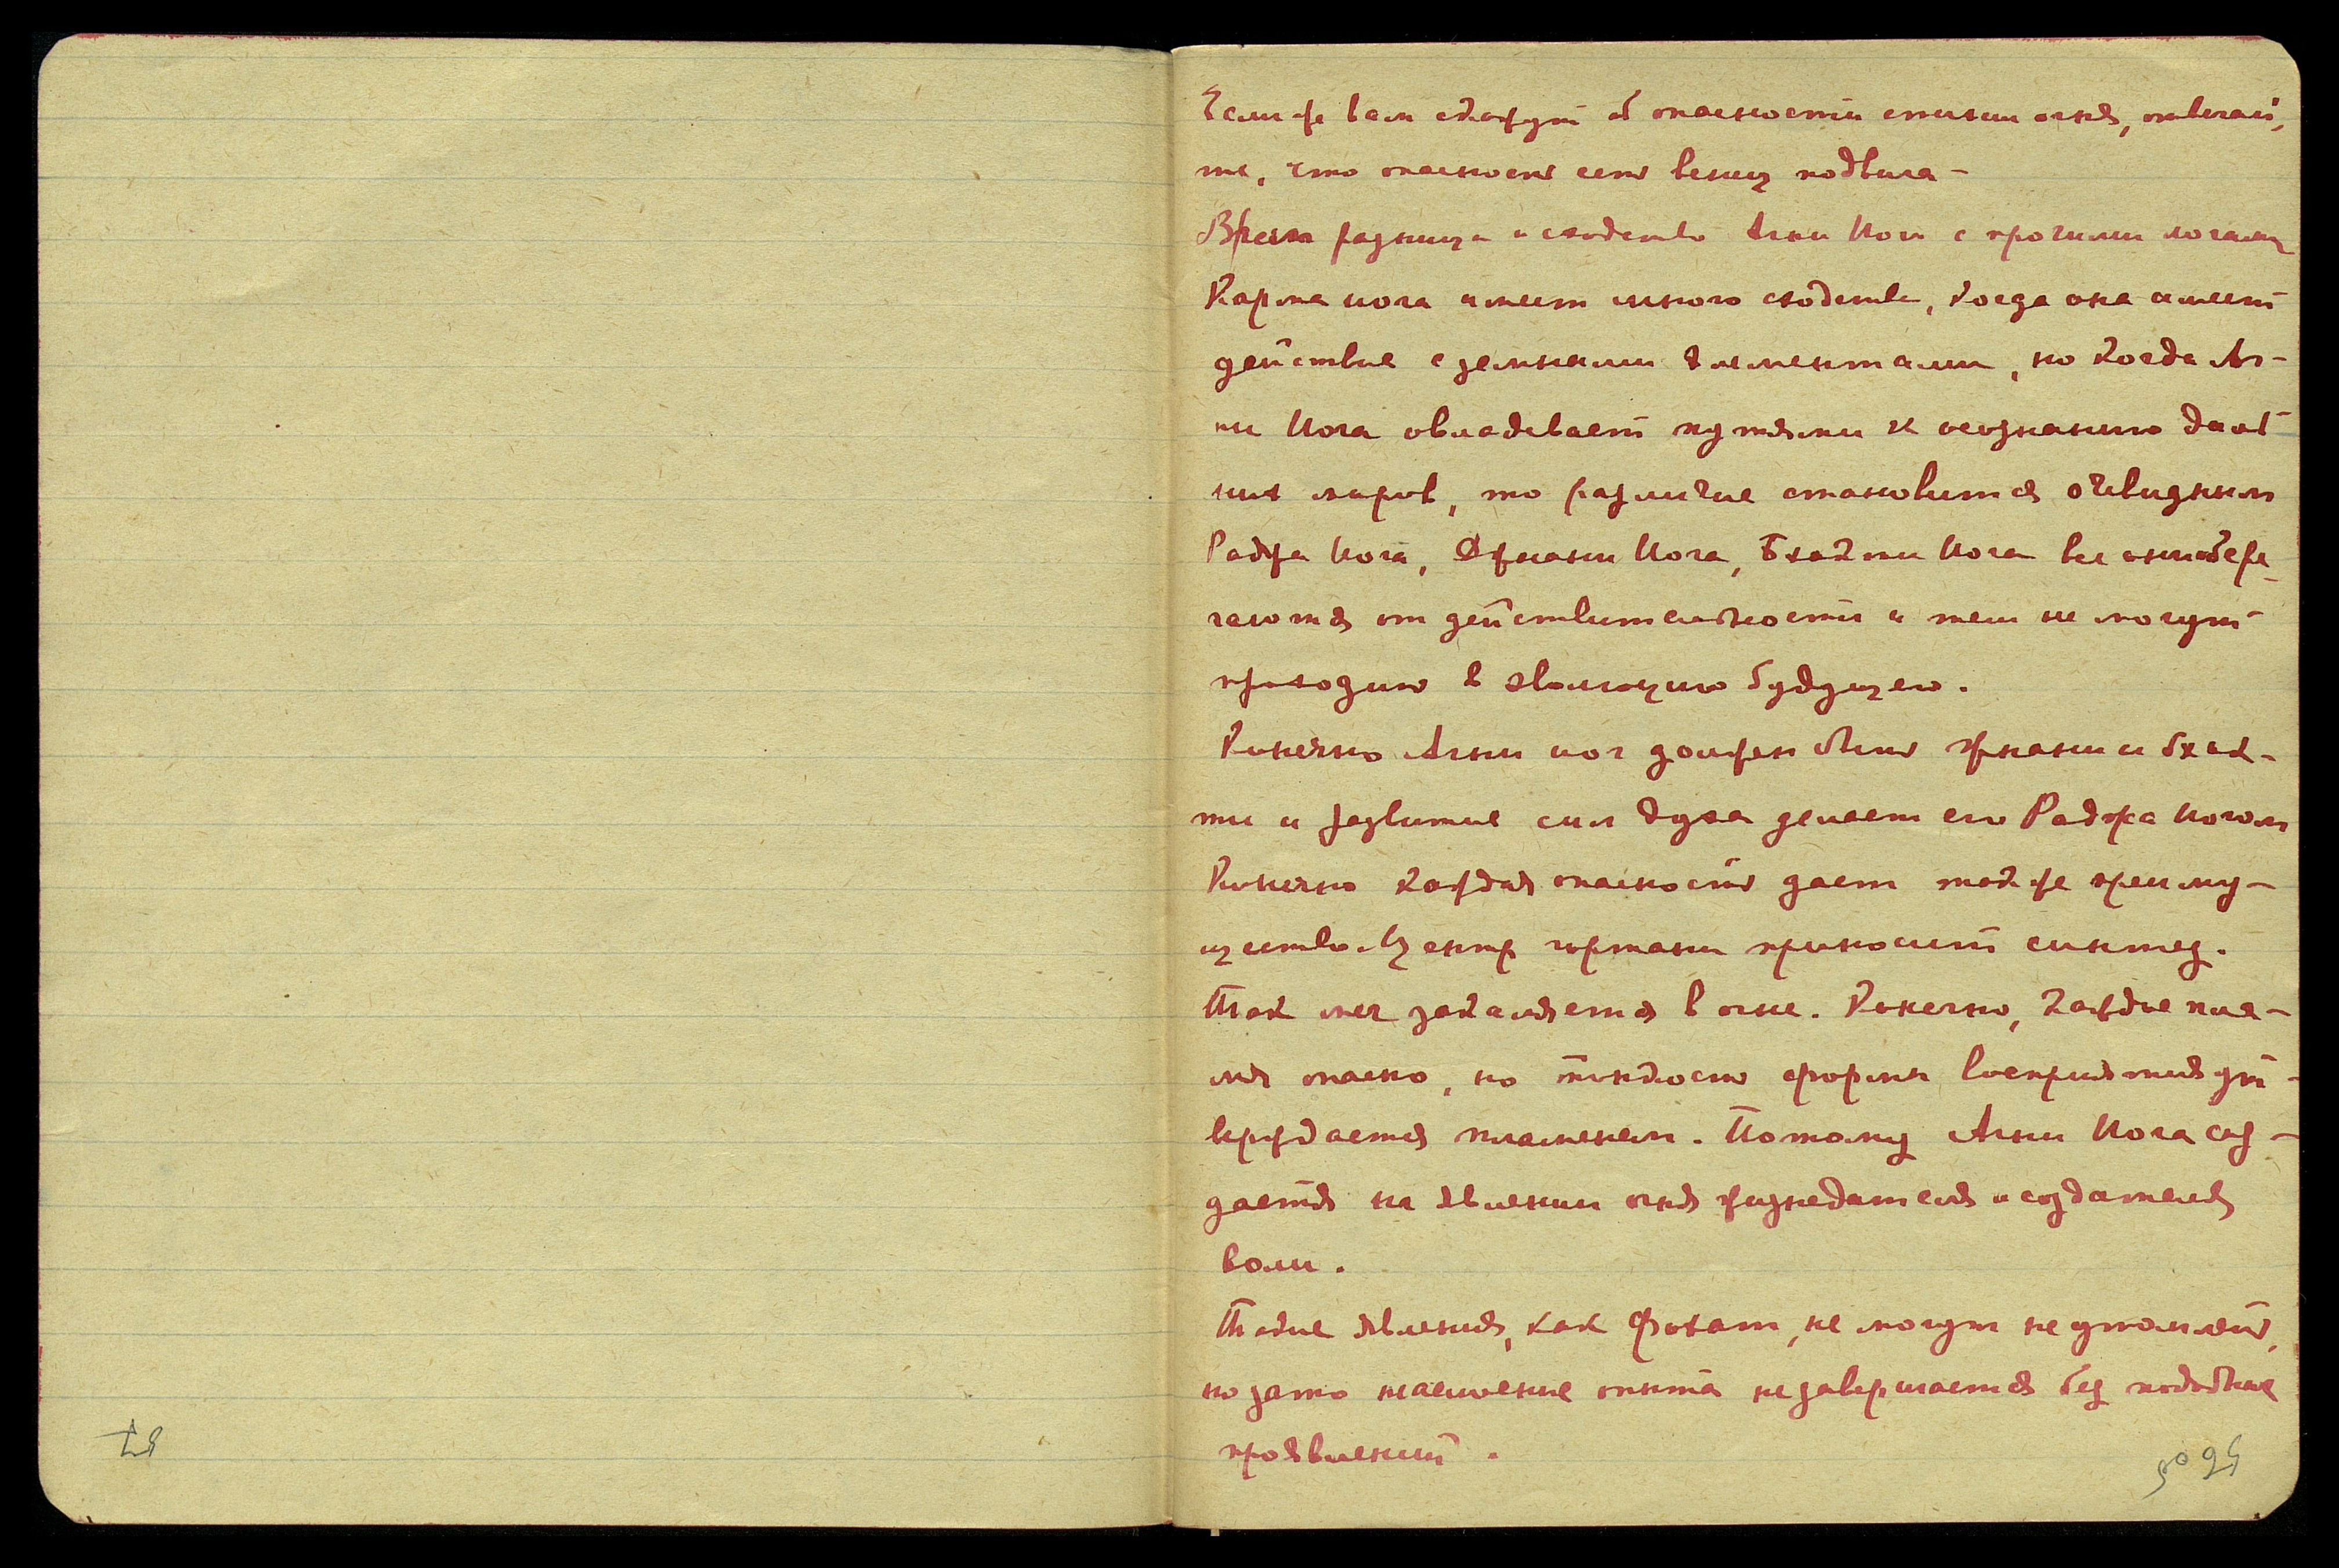 Если же вам скажут об опасности стихии огня, отвечай,
те, что опасность есть венец подвига –
Время разница и сходство Агни Йоги с прочими йогами
Карма йога имеет много сходства, когда она имеет
действие с земными элементами, но когда Аг–
ни Йога овладевает путями к осознанию даль–
них миров, то различие становится очевидным
Раджа Йога, Джнани Йога, Бхакти Йога все они обере–
гаются от действительности и тем не могут
приходить в эволюцию будущего.
Конечно Агни йог должен быть жнани и бхак–
ти и развитие сил духа делает его Раджа Йогом
Конечно каждая опасность дает также преиму–
щество. Центр гортани приносит синтез.
Так меч закаляется в огне. Конечно, каждое пла–
мя опасно, но тонкость формы восприятия ут–
верждается пламенем. Потому Агни Йога соз–
дается на явлении огня жизнедателя и создателя
воли.
Такие явления, как Фокат, не могут не утомлять,
но зато наслоение опыта не завершается без подобных
проявлений.
57
56 об